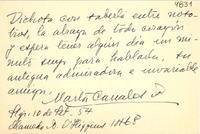 4831
Dichosa con saberla entre noso-
tros, la abraza de todo corazón
y espera tener algún día un mi-
nuto suyo para hablarle, su
antigua admiradora e invariable
amiga.
Marta Canales P
Stgo. 10 de Set. 54
B. O'Higgins 1468